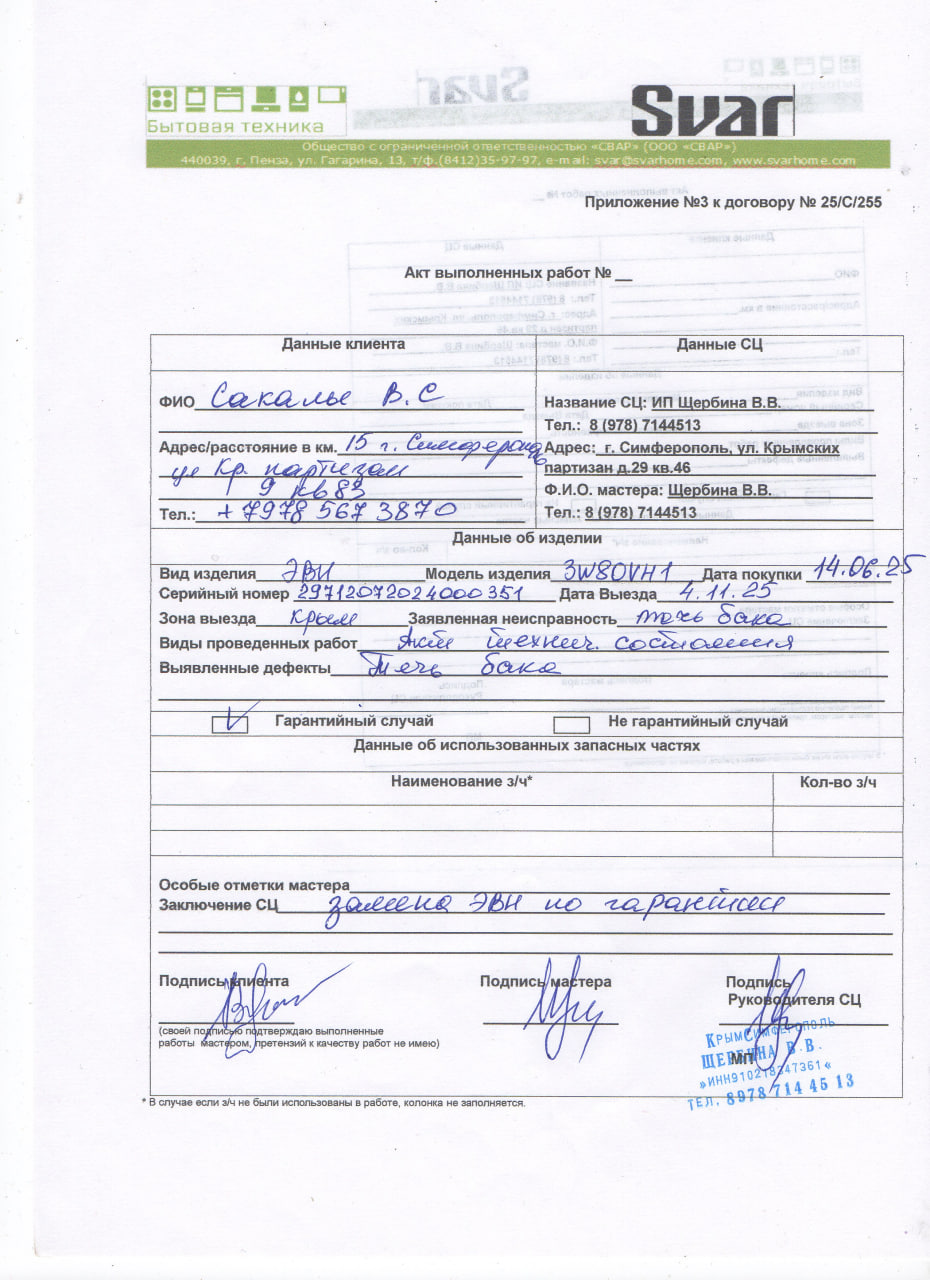 Svar
Бытовая техника
Общество с ограниченной ответственностью «СВАР» (ООО «СВАР»)
440039, г. Пенза, ул. Гагарина, 13, т/ф.(8412)35-97-97, e-mail: svar@svarhome.com, www.svarhome.com
Приложение №3 к договору № 25/С/255
Акт выполненных работ № __
Данные клиента
ФИО Сакалье В.С
Адрес/расстояние в км. 15 г. Симферополь
ул Кр. партизан
9 кв 83
Тел.: +7978 567 3870
Данные СЦ
Название СЦ: ИП Щербина В.В.
Тел.: 8 (978) 7144513
Адрес: г. Симферополь, ул. Крымских
партизан д.29 кв.46
Ф.И.О. мастера: Щербина В.В.
Тел.: 8 (978) 7144513
Данные об изделии
Вид изделия ЭВН Модель изделия 3W80VH1 Дата покупки 14.06.25
Серийный номер 29712072024000351 Дата Выезда 4.11.25
Зона выезда Крым Заявленная неисправность течь бака
Виды проведенных работ Акт технич. состояния
Выявленные дефекты Течь бака
Гарантийный случай Не гарантийный случай
Данные об использованных запасных частях
Наименование з/ч* Кол-во з/ч
Особые отметки мастера
Заключение СЦ замена ЭВН по гарантии
Подпись клиента Подпись мастера Подпись
Руководителя СЦ
(своей подписью подтверждаю выполненные
работы мастером, претензий к качеству работ не имею)
МП
КРЫМСИМФЕРОПОЛЬ
ЩЕРБИНА В.В.
»ИНН910218347361«
ТЕЛ. 8978 714 45 13
* В случае если з/ч не были использованы в работе, колонка не заполняется.